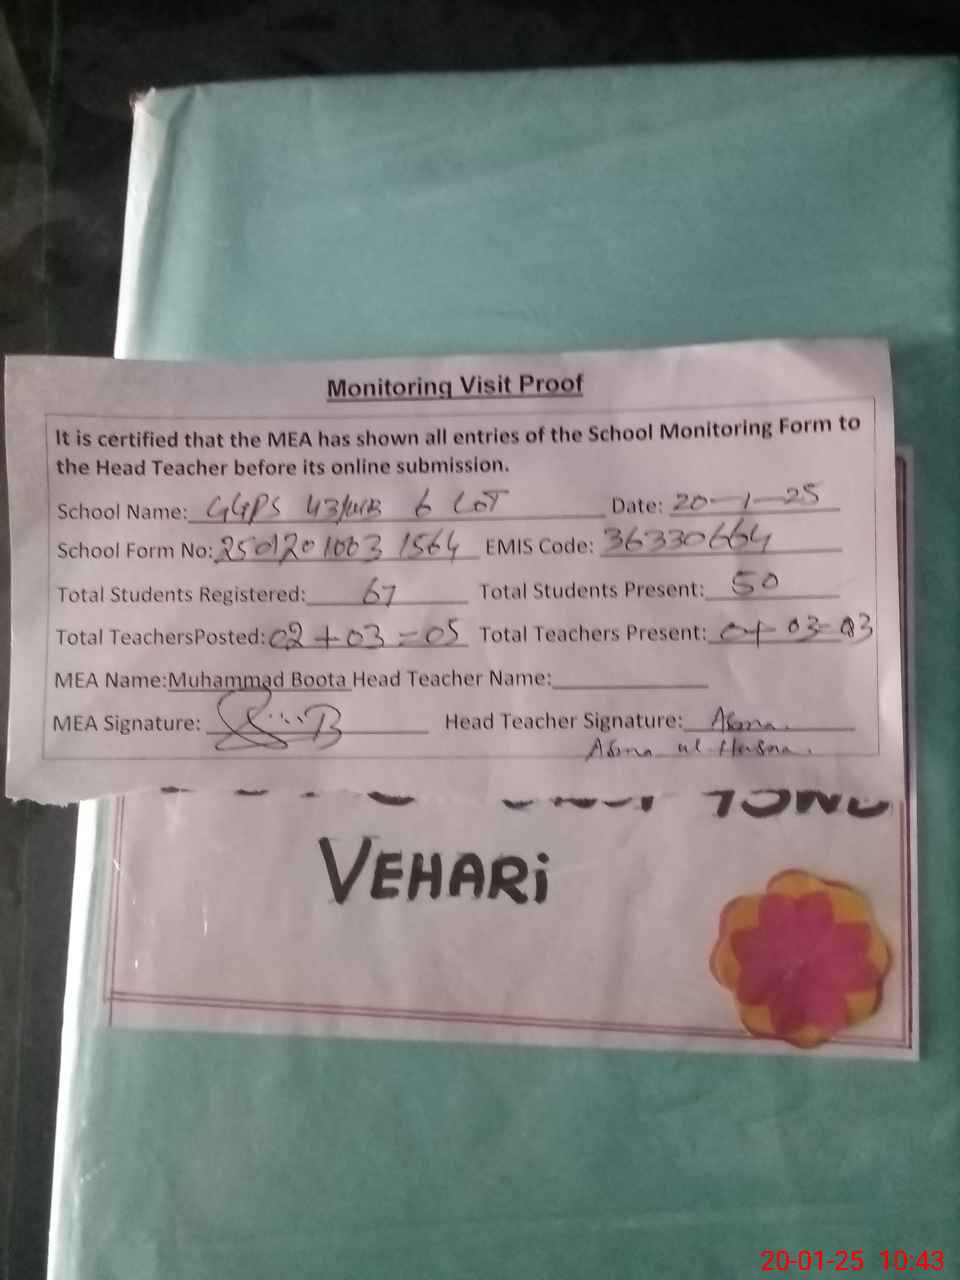 Monitoring Visit Proof
It is certified that the MEA has shown all entries of the School Monitoring Form to
the Head Teacher before its online submission.
School Name: GGPS 43/WB 6 LOT Date: 20-1-25
School Form No: 1564 EMIS Code: 36330664
Total Students Registered: 67 Total Students Present: 50
Total TeachersPosted: 02+03=05 Total Teachers Present: 03=03
MEA Name: Muhammad Boota Head Teacher Name:
MEA Signature: Head Teacher Signature: Asma.
Asma ul Husna.
VEHARi
20-01-25 10:43